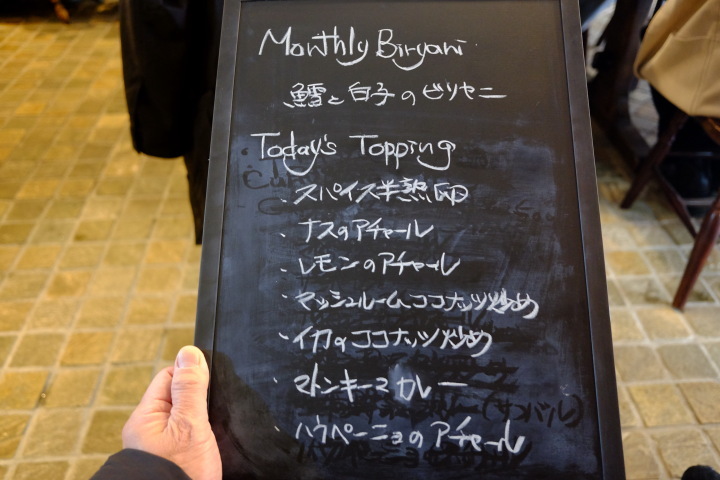 Monthly Biryani
鱈と白子のビリヤニ
Today's Topping
・スパイス半熟卵
・ナスのアチャール
・レモンのアチャール
・マッシュルームココナッツ炒め
・イカのココナッツ炒め
・マトンキーマカレー
・ハラペーニョのアチャール